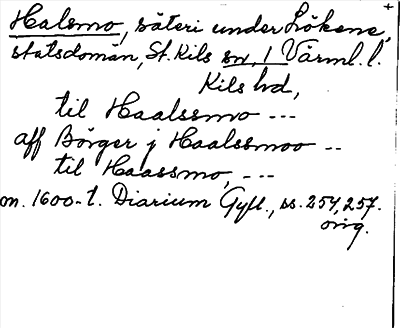 Halsmo, säteri under Lökene,
statsdomän, St. Kils sn, 1 Värml. l.
Kils hd,
til Haalssmo ---
aff Börger j Haalssmoo --
til Haassmo, ---
m. 1600-t. Diarium Gyll., ss. 254, 257.
orig.